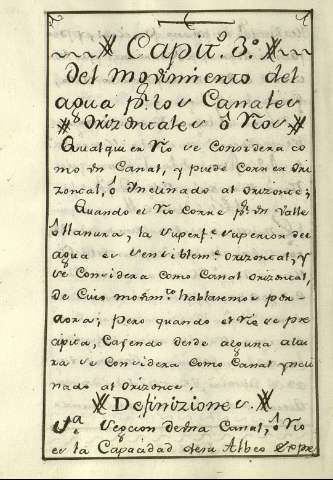 Capit.º 3.º
Del movimiento del
agua p.r los Canales
Orizontales ô Rios
Qualquier Rio se considera co
mo un Canal, y puede Correr Ori
zontal, ô Inclinado al Orizonte;
Quando el Rio Corre p.r un Valle
ô llanura, la superf.e superior del
agua es sensiblem.te Orizontal, y
se Considera como Canal Orizontal,
de Cuio movim.to hablaremos por
aora; Pero quando el Rio se pre
cipita, Cayendo desde alguna altu
ra se Considera como Canal Yncli
nado al Orizonte.
Definiziones.
1.ª Seccion de una Canal, ô Rio
es la Capacidad de su Albeo